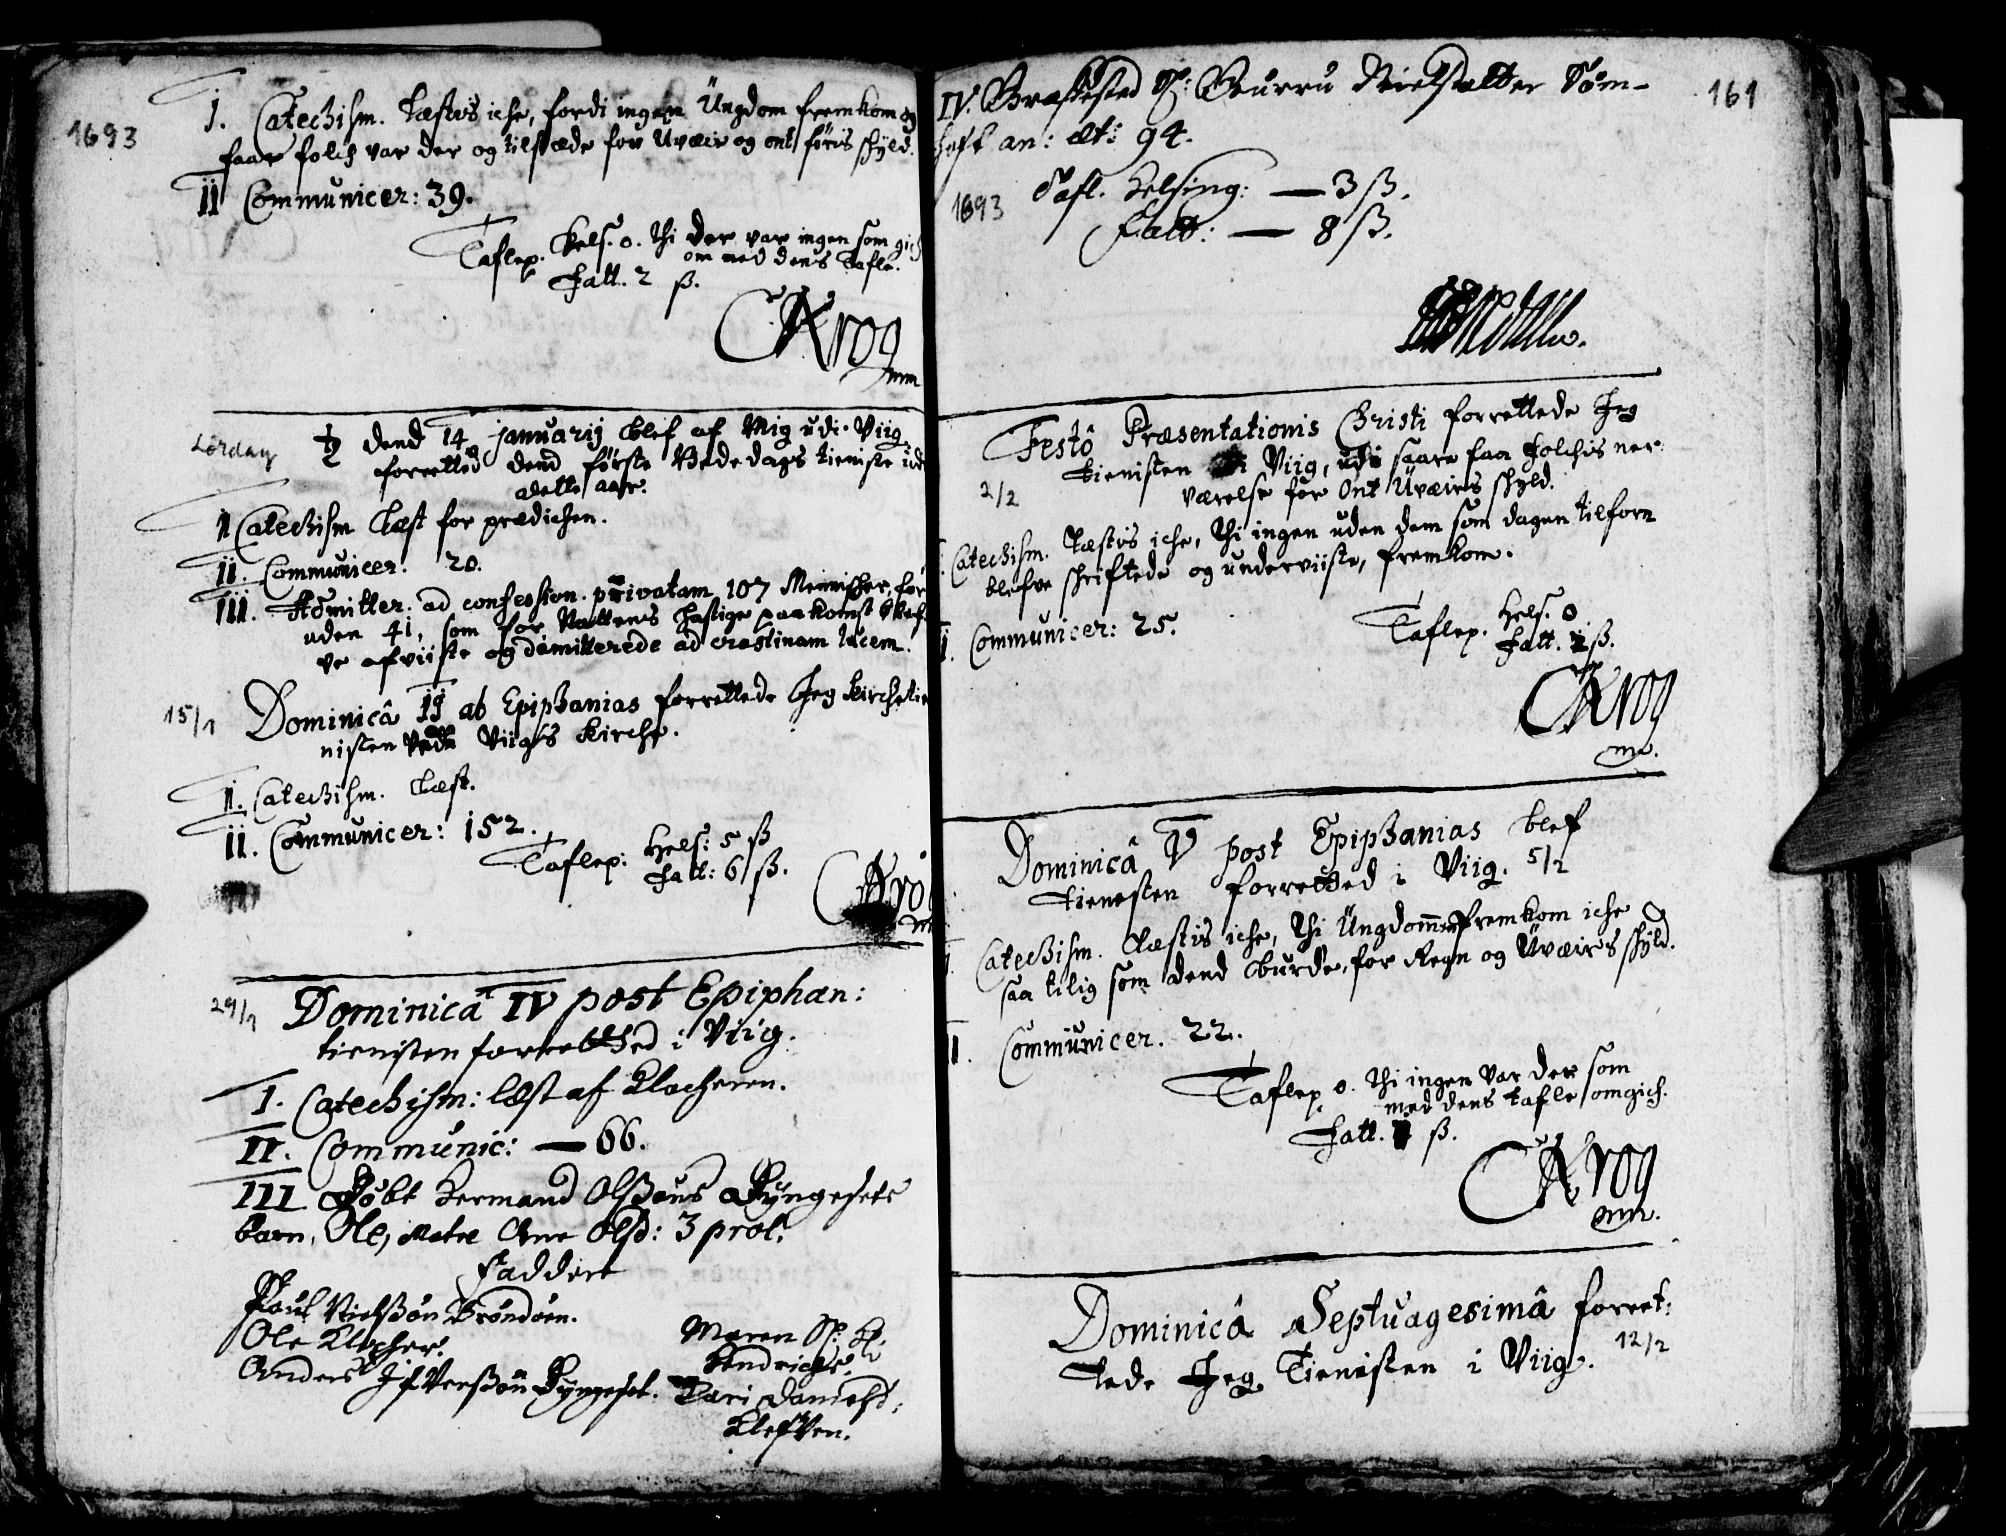 1693
I. Catechism. Læstis iche, fordi ingen Ungdom fremkom og
faar folch var der og tilstæde for Uvæir og ont føris schyld.
II Communicer: 39.
Taflep. Hels. 0. thi der var ingen som gich
om med dens Tafle.
Fatt. 2 ß.
CKrog
mm
Lørdag
dend 14 januarij blef af Mig udi Viig
forretted dend første Bededags tieniste udi
dette aar.
I Catechism Læst for prædichen.
II. Communicer. 20.
III. Admitter. ad confession. privatam 107 Mennischer, for
uden 41, som for Nattens hastige paakomst blef
ve afviiste og dimitterede ad crastinam lucem.
15/1
Dominicâ II ab Epiphanias forrettede Jeg Kirchetie
nisten Viigs Kirche.
I. Catechism. Læst.
II. Communicer: 152.
Taflep: Hels: 5 ß
Fatt: 6 ß.
CKrog
m
29/1
Dominicâ IV post Epiphan:
tienisten forretthed i Viig.
I. Catechism: læst af Klocheren.
II. Communic: — 66.
III Døbt Hermand Olßøns Ryngesets
barn, Ole, Matre Ane Olsd: 3 prol.
Faddere
Paul Nielßøn Brøndøen.
Ole Klocher.
Anders Ifversøn Ryngeset.
Maren Sl:
Hendrichs.
Kari Danielsd:
Klefven.
161
IV. Grafested Sl: Gurru Nielsdatter Søm-
hoft an: æt: 94.
1693
Tafl. Helsing: — 3 ß.
Fatt: — 8 ß.
Festô Præsentationis Christi forrettede Jeg
tienisten i Viig, udi saare faa Folchis ner:
værelse for Ont Uvæirs schyld.
2/2
I. Catechism. Læstis iche, thi ingen uden dem som dagen tilforn
blefve schriftede og underviiste, fremkom.
II. Communicer: 25.
Taflep. Hels. 0
Fatt. ß.
CKrog
m.
Dominicâ V post Epiphanias blef
tienesten forretted i Viig. 5/2
I. Catechism. Læstis iche, thi Ungdommen fremkom iche
saa tilig som dend burde, for Regn og Uvæirs schyld.
II. Communicer. 22.
Taflep 0. thi ingen var der som
med dens tafle omgich.
Fatt. ß.
CKrog
mm.
Dominicâ Septuagesimâ forret:
tede Jeg Tienisten i Viig. 12/2